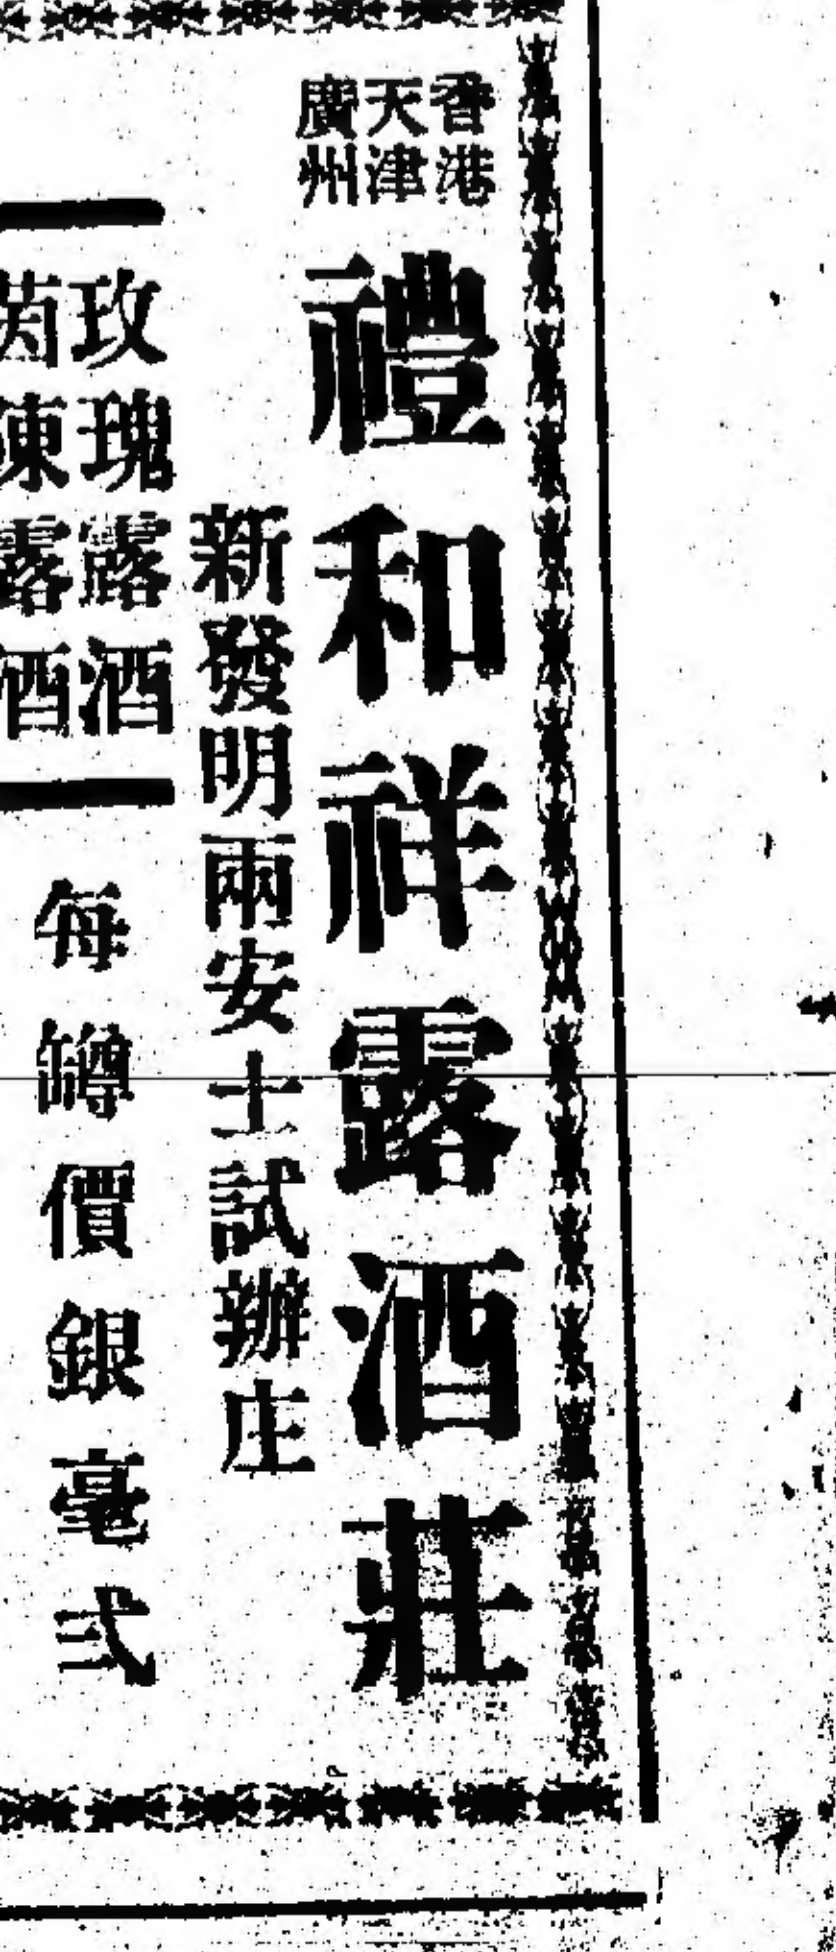 香港
天津
廣州
禮和祥露酒莊
新發明兩安士試辦庄
玫瑰露酒
茵陳露酒
每罇價銀毫弍